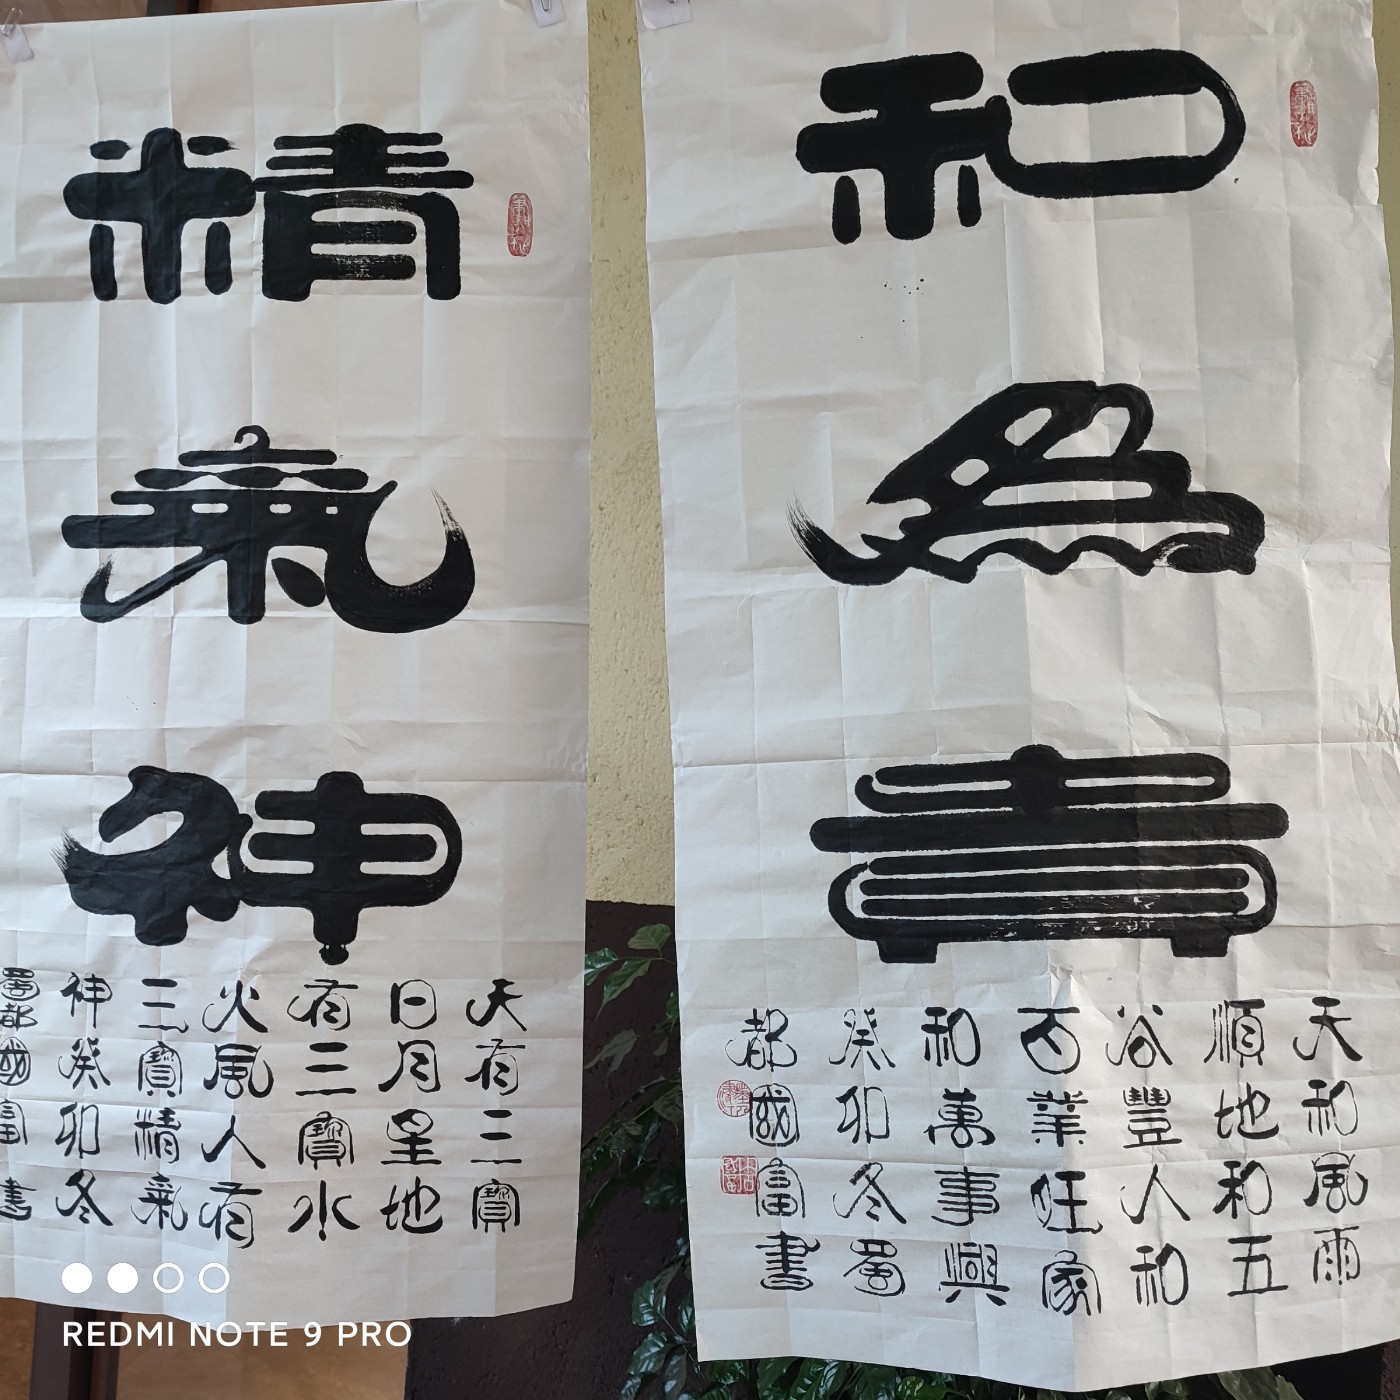 和
為
貴
天和風雨
順地和五
谷豐人和
百業旺家
和萬事興
癸卯冬蜀
都國富書
精
氣
神
天有三寶
日月星地
有三寶水
火風人有
三寶精氣
神癸卯冬
蜀都國富書
REDMI NOTE 9 PRO